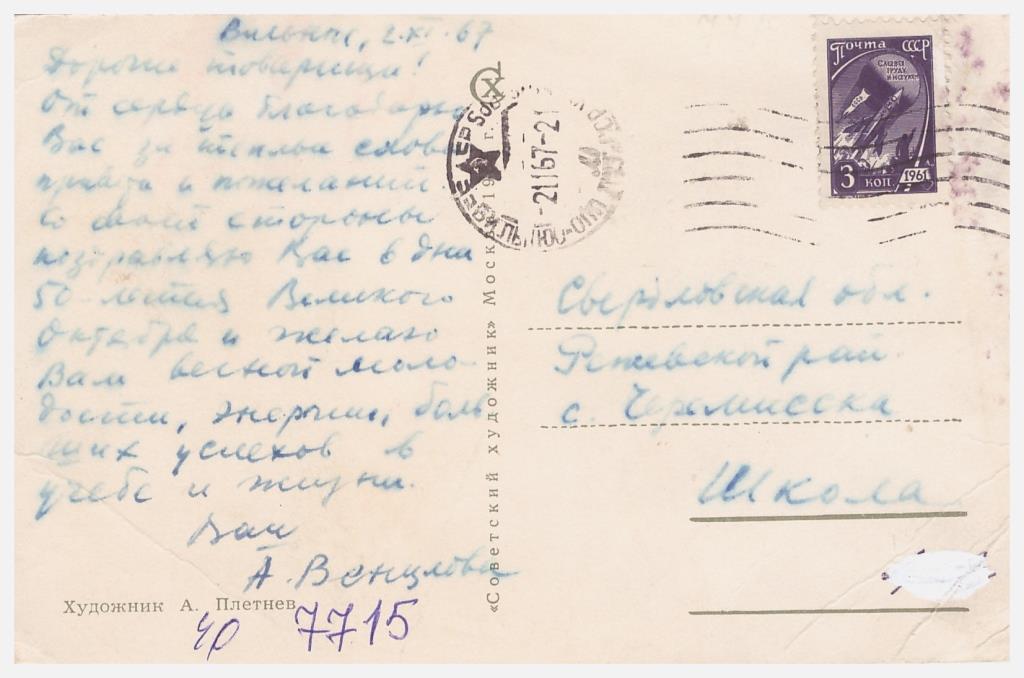 Вильнюс, 2.XI.67
Дорогие товарищи!
От сердца благодарю
Вас за теплые слова
привета и пожеланий.
Со своей стороны
поздравляю Вас в дни
50-летия Великого
Октября и желаю
Вам вечной моло-
дости, энергии, боль
ших успехов в
учебе и жизни.
Ваш
А. Венцлова
Художник А. Плетнев
40 7715
«Советский художник» Москва 19 г.
СХ
-21167-21
Почта СССР
Слава
труду
и науке
3 коп. 1961
Свердловская обл.
Режевской рай.
с. Черемисска
Школа